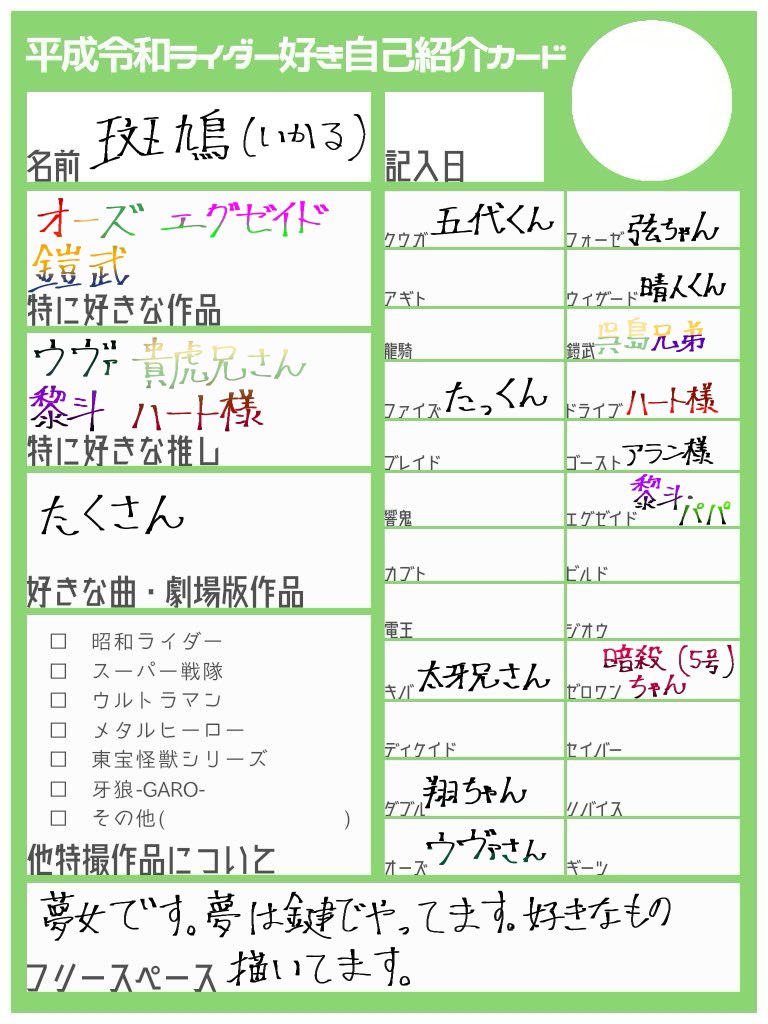 平成令和ライダー好き自己紹介カード
名前 斑鳩(いかる)
記入日
オーズ エグゼイド
鎧武
特に好きな作品
ウヴァ 貴虎兄さん
黎斗 ハート様
特に好きな推し
たくさん
好きな曲・劇場版作品
□ 昭和ライダー
□ スーパー戦隊
□ ウルトラマン
□ メタルヒーロー
□ 東宝怪獣シリーズ
□ 牙狼-GARO-
□ その他( )
他特撮作品について
クウガ 五代くん
アギト
龍騎
ファイズ たっくん
ブレイド
響鬼
カブト
電王
キバ 太牙兄さん
ディケイド
ダブル 翔ちゃん
オーズ ウヴァさん
フォーゼ 弦ちゃん
ウィザード 晴人くん
鎧武 呉島兄弟
ドライブ ハート様
ゴースト アラン様
エグゼイド 黎斗・
パパ
ビルド
ジオウ
ゼロワン 暗殺(5号)
ちゃん
セイバー
リバイス
ギーツ
夢女です。夢は鍵でやってます。好きなもの
フリースペース 描いてます。